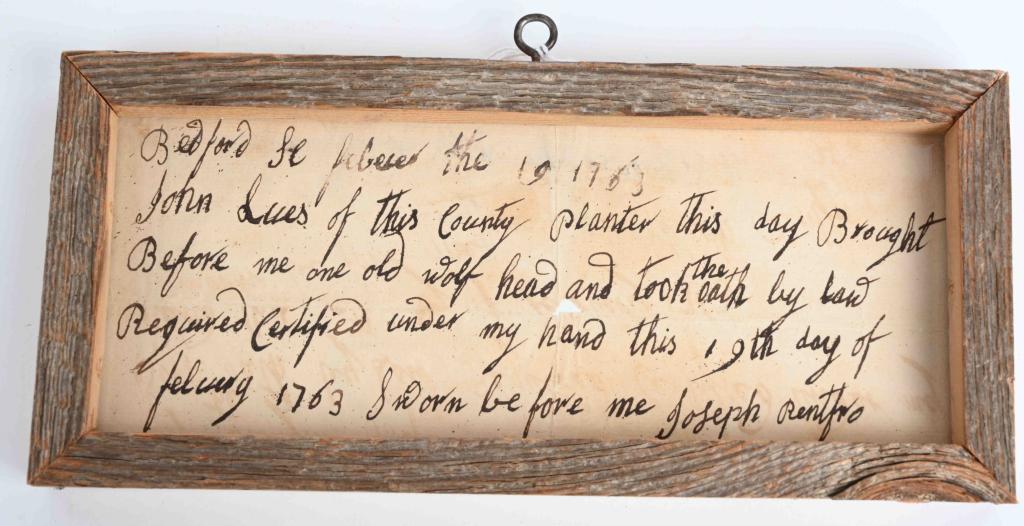 Bedford Sc febeuer the 19 1763
John Lues of this County planter this day Brought
Before me one old wolf head and took the oath by Law
Required Certified under my hand this 19th day of
feluery 1763 Sworn before me Joseph Rentfro